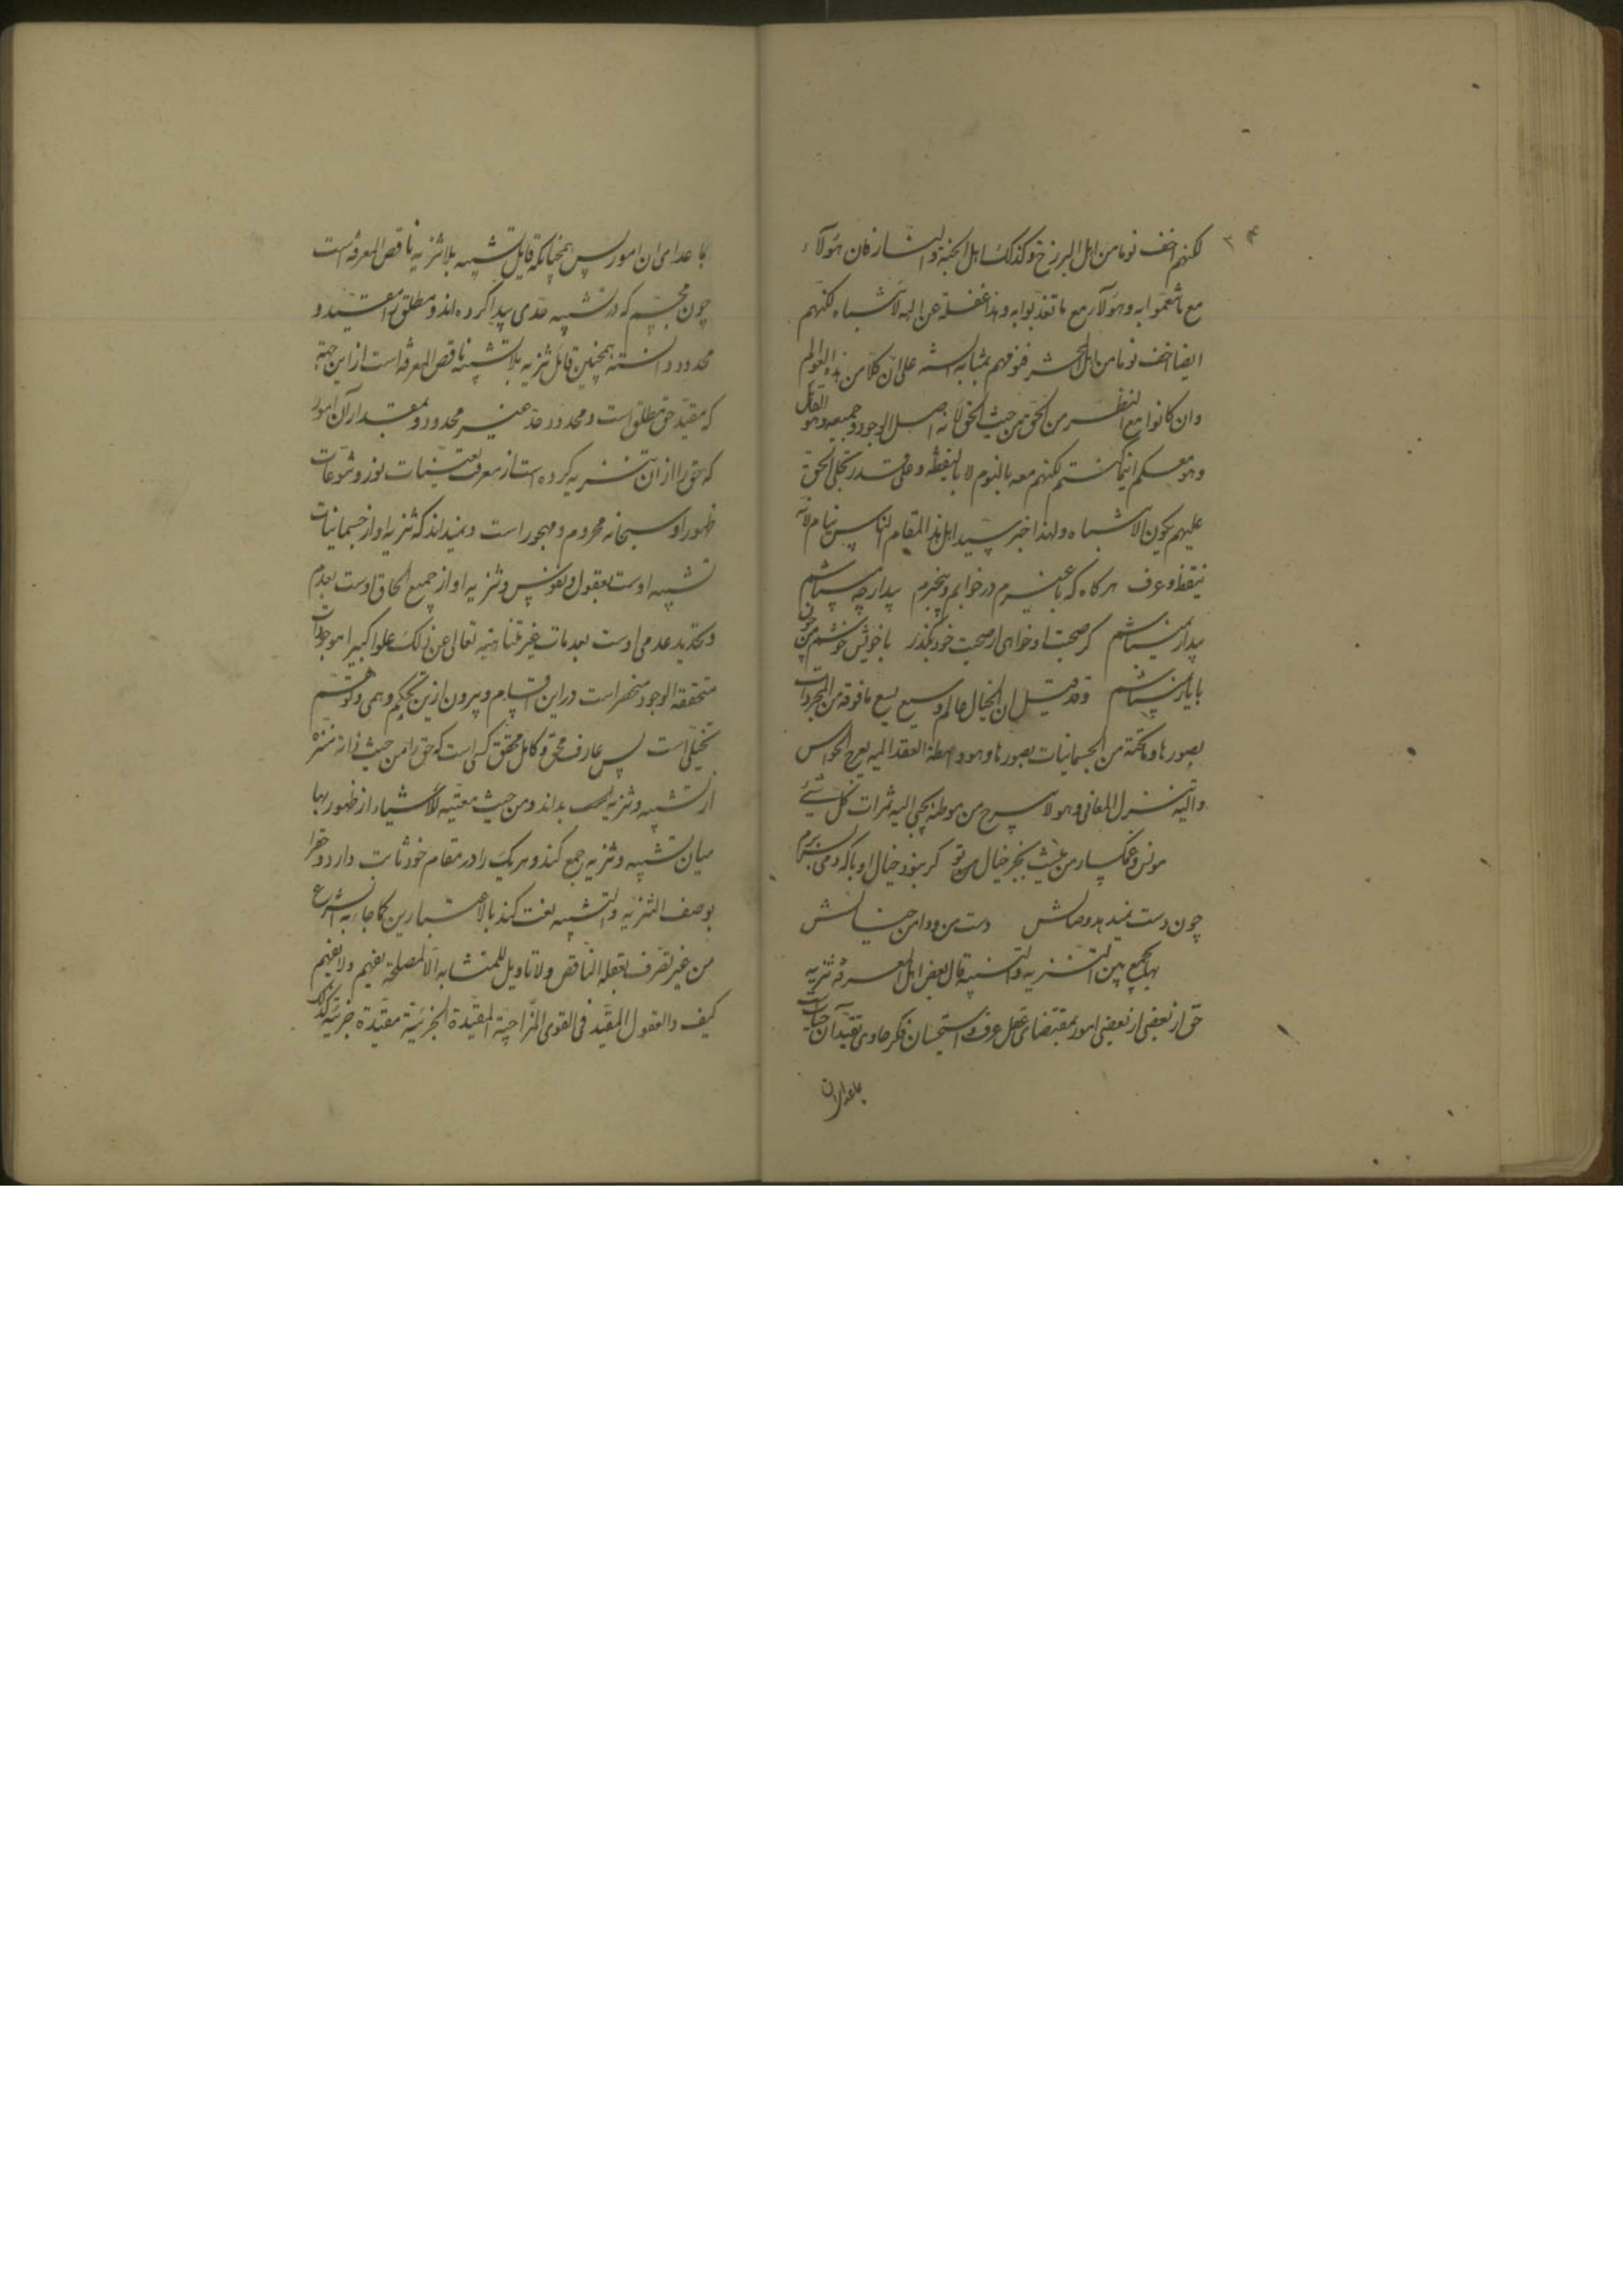 ۳۴
لکنهم اخف نوما من اهل البرزخ وکذلک اهل الجنة والنار فان هؤلاء
مع ما تنعموا به وهؤلاء مع ما تعذبوا به وهذا غفلة عن الله لا شباه لکنهم
ایضا اخف نوما من اهل المحشر فنومهم بمثابة السنة علی ان کلا من هذه العوالم
وان کانوا مع النظر من الحق من حیث الحق لانه اصل الوجود وجمیعه وهو القائل
وهو معکم اینما کنتم لکنهم معه بالنوم لا بالیقظة وعلی قدر تجلی الحق
علیهم یکون الانتباه ولهذا اخبر سید اهل هذا المقام الناس نیام لانه
تیقظ وعرف هرکاه که با غیرم در خوابم و بیخبرم بیدار چه میباشم
بیدار نمیباشم کر صحبت او خواهی از صحبت خود بکذر با خویش خوشم من چون
با یار نمیباشم وقد قیل ان الخیال عالم وسیع یسع ما فوقه من المجردات
بصورها وما تحته من الجسمانیات بصورها وهو واسطة العقد الیه یعرج الحواس
والیه تنزل المعانی وهو لا یبرح من موطنه یجبی الیه ثمرات کل شیء
مونس و غمکسار من نیست بجز خیال تو کر نبود خیال او با که دمی بر آورم
چون دست نمیدهد وصالش دست من و دامن خیالش
بهاء الجمع بین التنزیه والتشبیه قال بعض اهل المعرفة تنزیه
حق از بعضی از بعضی امور بمقتضای عقل و عرف و استحسان فکر حاوی تقیید آن جناب
با عدای ان
با عدای ان امور پس همچنانکه قایل تشبیه بلا تنزیه ناقص المعرفه است
چون مجسم که در تشبیه حدی پیدا کرده اند و مطلق را مقید و
محدود دانسته همچنین قایل تنزیه بلا تشبیه ناقص المعرفه است از این جهة
که مقید حق مطلق است و محدد حد غیر محدود و بمقدار آن امور
که حق را از ان تنزیه کرده است از معرفت تعینات نور و تنوعات
ظهور او سبحانه محروم و مهجور است و نمیداند که تنزیه او از جسمانیات
تشبیه اوست بعقول و نفوس و تنزیه او از جمیع الحاق اوست بعدم
و تحدید عدمی اوست بعدمات غیر متناهیه تعالی عن ذلک علوا کبیرا موجودات
متحققة الوجود منحصر است در این اقسام و بیرون ازین تحکم وهمی و توهم
تخیلی است پس عارف محق و کامل محقق کسی است که حق را من حیث ذاته منزه
از تشبیه و تنزیه بداند و من حیث معیته للاشیاء از ظهور بها
میان تشبیه و تنزیه جمع کند و هر یک را در مقام خود ثابت دارد و حق را
بوصف التنزیه والتشبیه نعت کند بالاعتبارین کما جاء به الشرع
من غیر تصرف بعقله الناقص ولا تاویل للمتشابه الا لمصلحة تفهیم ولا تفهیم
کیف والعقول المقید فی القوی المزاجیة المقیدة الجزئیة مقیدة جزئیة کذلک